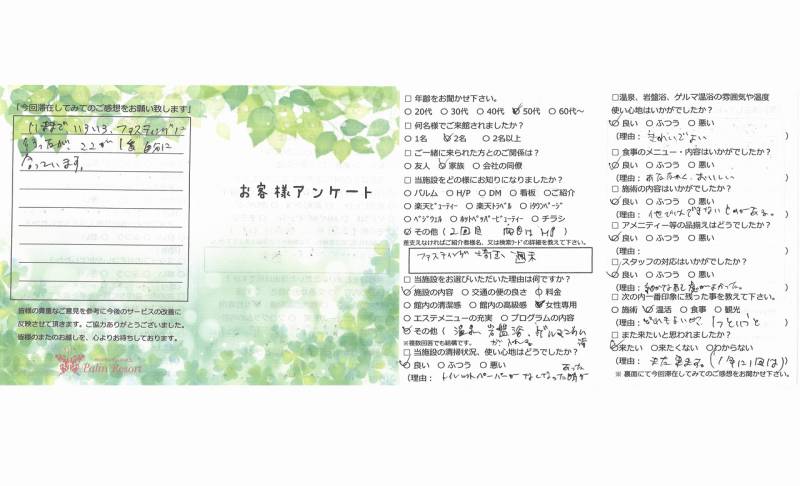 「今回滞在してみてのご感想をお願い致します」
今まで、いろいろ、ファスティングに
行ったが、ここが1番自分に
合っています。
皆様の貴重なご意見を参考に今後のサービスの改善に
反映させて頂きます。ご協力ありがとうございました。
皆様のまたのお越しを、心よりお待ちしております。
Palm Resort
お客様アンケート
□ 年齢をお聞かせ下さい。
○ 20代 ○ 30代 ○ 40代 ○ 50代 ○ 60代～
□ 何名様でご来館されましたか？
○ 1名 ○ 2名 ○ 2名以上
□ ご一緒に来られた方とのご関係は？
○ 友人 ○ 家族 ○ 会社の同僚
□ 当施設をどの様にお知りになりましたか？
○ パルム ○ H/P ○ DM ○ 看板 ○ご紹介
○ 楽天ビューティー ○ 楽天トラベル ○ iタウンページ
○ ベジウェル ○ ホットペッパービューティー ○ チラシ
○ その他（2回目 前回はHP ）
差支えなければご紹介者様名、又は検索ワードの詳細を教えて下さい。
ファスティング 埼玉 週末
□ 当施設をお選びいただいた理由は何ですか？
○ 施設の内容 ○ 交通の便の良さ ○ 料金
○ 館内の清潔感 ○ 館内の高級感 ○ 女性専用
○ エステメニューの充実 ○ プログラムの内容
○ その他（温泉、岩盤浴、ゲルマニウム
※複数回答でも結構です。 が入れる
□ 当施設の清掃状況、使い心地はどうでしたか？
○ 良い ○ ふつう ○ 悪い
(理由： トイレットペーパーがなくなった時が
あった
□温泉、岩盤浴、ゲルマ温浴の雰囲気や温度
使い心地はいかがでしたか？
○ 良い ○ ふつう ○ 悪い
(理由： きれいでよい )
□ 食事のメニュー・内容はいかがでしたか？
○ 良い ○ ふつう ○ 悪い
(理由： あたたかく、おいしい )
□ 施術の内容はいかがでしたか？
○ 良い ○ ふつう ○ 悪い
(理由： 他ではできないものがある。 )
□ アメニティー等の品揃えはどうでしたか？
○ 良い ○ ふつう ○ 悪い
(理由： )
□ スタッフの対応はいかがでしたか？
○ 良い ○ ふつう ○ 悪い
(理由： )
□ 次の内一番印象に残った事を教えて下さい。
○ 施術 ○ 温活 ○ 食事 ○ 観光
(理由： どれもよいが、1つというと )
□ また来たいと思われましたか？
○来たい ○ 来たくない ○わからない
(理由： また来ます。(1年に1回は))
※ 裏面にて今回滞在してみてのご感想をお聞かせ下さい。